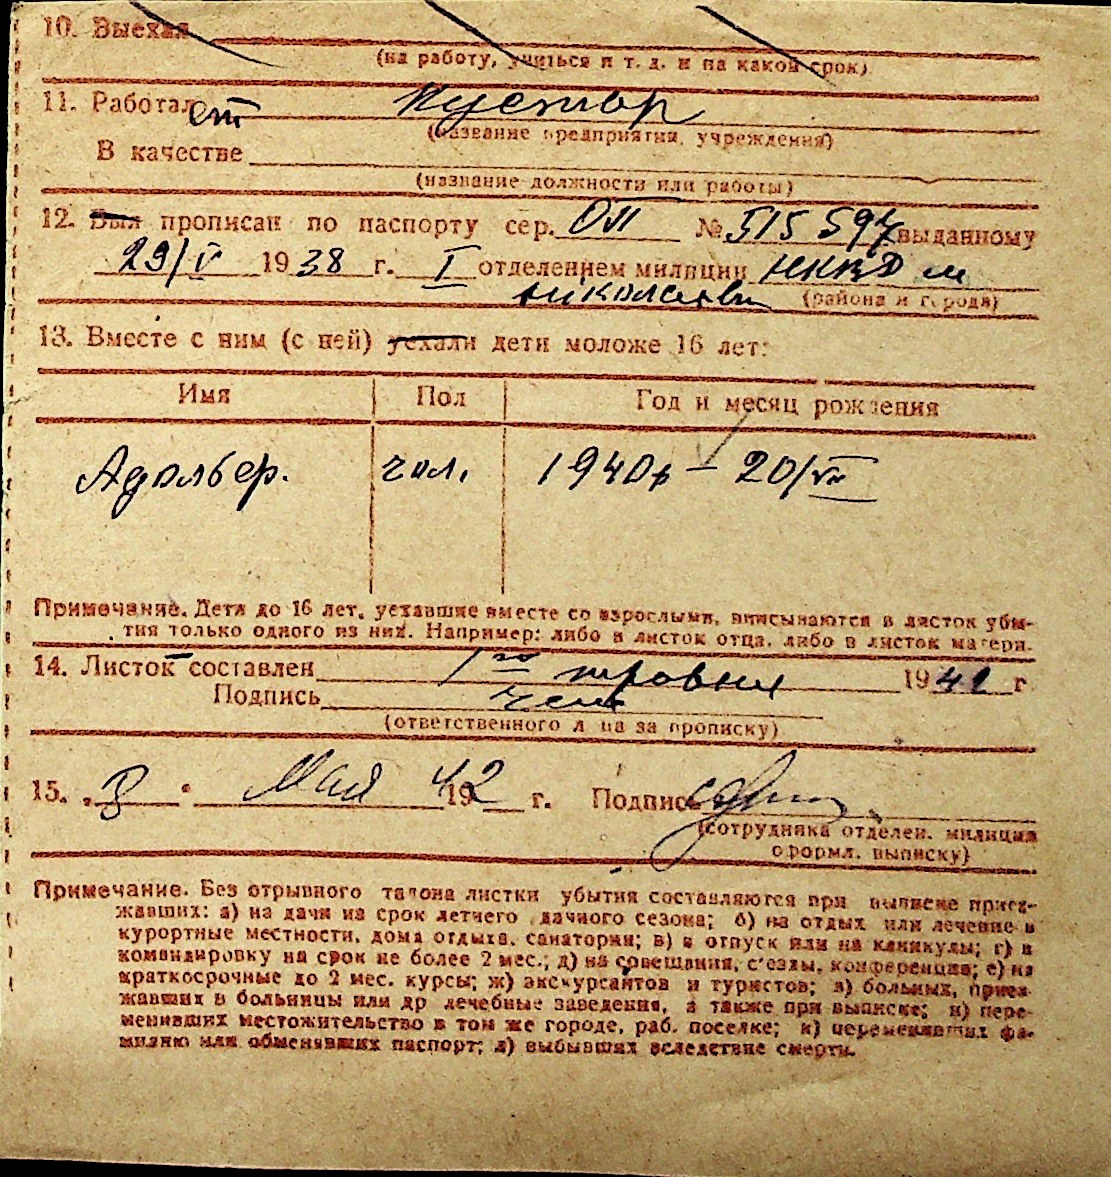 10. Выехал
(на работу, учиться и т. д. и на какой срок)
11. Работает кустар
(название предприятия, учреждения)
В качестве
(название должности или работы)
12. Был прописан по паспорту сер. ОЛ № 515597 выданному
29/V 1938 г. I отделением милиции НКВД м
Николаеви (района и города)
13. Вместе с ним (с ней) уехали дети моложе 16 лет:
Имя Пол Год и месяц рождения
Адольбер. чол. 1940р – 20/VII
Примечание. Дети до 16 лет, уехавшие вместе со взрослыми, вписываются в листок убы-
тия только одного из них. Например: либо в листок отца, либо в листок матери.
14. Листок составлен 1го травня 1942 г
Подпись
(ответственного лица за прописку)
15. „3" Мая 1942 г. Подпись
(сотрудника отделен. милиции
оформл. выписку)
Примечание. Без отрывного талона листки убытия составляются при выписке приез-
жавших: а) на дачи на срок летнего дачного сезона; б) на отдых или лечение в
курортные местности, дома отдыха, санатории; в) в отпуск или на каникулы; г) в
командировку на срок не более 2 мес.; д) на совещания, с'езды, конференции; е) на
краткосрочные до 2 мес. курсы; ж) экскурсантов и туристов; з) больных, приез-
жавших в больницы или др лечебные заведения, а также при выписке; и) пере-
менивших местожительство в том же городе, раб. поселке; к) переменивших фа-
милию или обменявших паспорт; л) выбывших вследствие смерти.